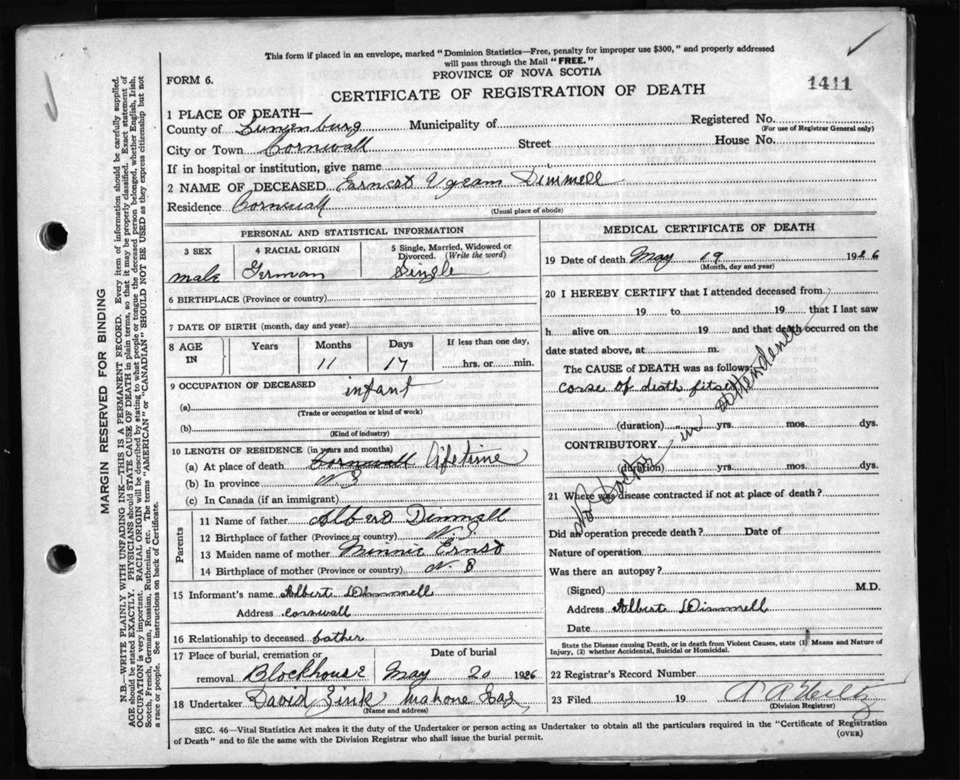 This form if placed in an envelope, marked "Dominion Statistics—Free, penalty for improper use $300," and properly addressed
will pass through the Mail "FREE."
PROVINCE OF NOVA SCOTIA
FORM 6.
CERTIFICATE OF REGISTRATION OF DEATH
1411
1 PLACE OF DEATH—
County of Lunenburg Municipality of Registered No.
(For use of Registrar General only)
City or Town Cornwall Street House No.
If in hospital or institution, give name
2 NAME OF DECEASED Ernest Dimmell
Residence Cornwall
(Usual place of abode)
PERSONAL AND STATISTICAL INFORMATION
3 SEX 4 RACIAL ORIGIN 5 Single, Married, Widowed or
Divorced. (Write the word)
male German Single
6 BIRTHPLACE (Province or country)
7 DATE OF BIRTH (month, day and year)
8 AGE IN Years Months Days If less than one day,
11 17 hrs. or min.
9 OCCUPATION OF DECEASED infant
(a)
(Trade or occupation or kind of work)
(b)
(Kind of industry)
10 LENGTH OF RESIDENCE (in years and months)
(a) At place of death Cornwall lifetime
(b) In province N S
(c) In Canada (if an immigrant)
Parents
11 Name of father Albert Dimmell
12 Birthplace of father (Province or country) N.S
13 Maiden name of mother Minnie Ernst
14 Birthplace of mother (Province or country) N. S
15 Informant's name Albert Dimmell
Address cornwall
16 Relationship to deceased father
17 Place of burial, cremation or Date of burial
removal Blockhouse May 20 1926
18 Undertaker David Zink Mahone Bay
(Name and address)
MEDICAL CERTIFICATE OF DEATH
19 Date of death May 19 1926
(Month, day and year)
20 I HEREBY CERTIFY that I attended deceased from
19 to 19 that I last saw
h alive on 19 and that death occurred on
date stated above, at m.
The CAUSE of DEATH was as follows:
Corse of death fits
No Doctor in attendence
(duration) yrs. mos. dys.
CONTRIBUTORY
(duration) yrs. mos. dys.
21 Where was disease contracted if not at place of death?
Did an operation precede death? Date of
Nature of operation
Was there an autopsy?
(Signed) M.D.
Address Albert Dimmell
Date
State the Disease causing Death, or in death from Violent Causes, state (1) Means and Nature of
Injury, (2) whether Accidental, Suicidal or Homicidal.
22 Registrar's Record Number
23 Filed 19
(Division Registrar)
SEC. 46—Vital Statistics Act makes it the duty of the Undertaker or person acting as Undertaker to obtain all the particulars required in the "Certificate of Registration
of Death" and to file the same with the Division Registrar who shall issue the burial permit.
(OVER)
MARGIN RESERVED FOR BINDING
N.B.—WRITE PLAINLY WITH UNFADING INK—THIS IS A PERMANENT RECORD. Every item of information should be carefully supplied.
AGE should be stated EXACTLY. PHYSICIANS should STATE CAUSE OF DEATH in plain terms, so that it may be properly classified. Exact statement of
OCCUPATION is very important. RACIAL ORIGIN will be described by stating to what people or tongue the deceased person belonged, whether English, Irish,
Scotch, French, German, Russian, Ruthenian, etc. The terms "AMERICAN" or "CANADIAN" SHOULD NOT BE USED as they express citizenship but not
a race or people. See instructions on back of Certificate.